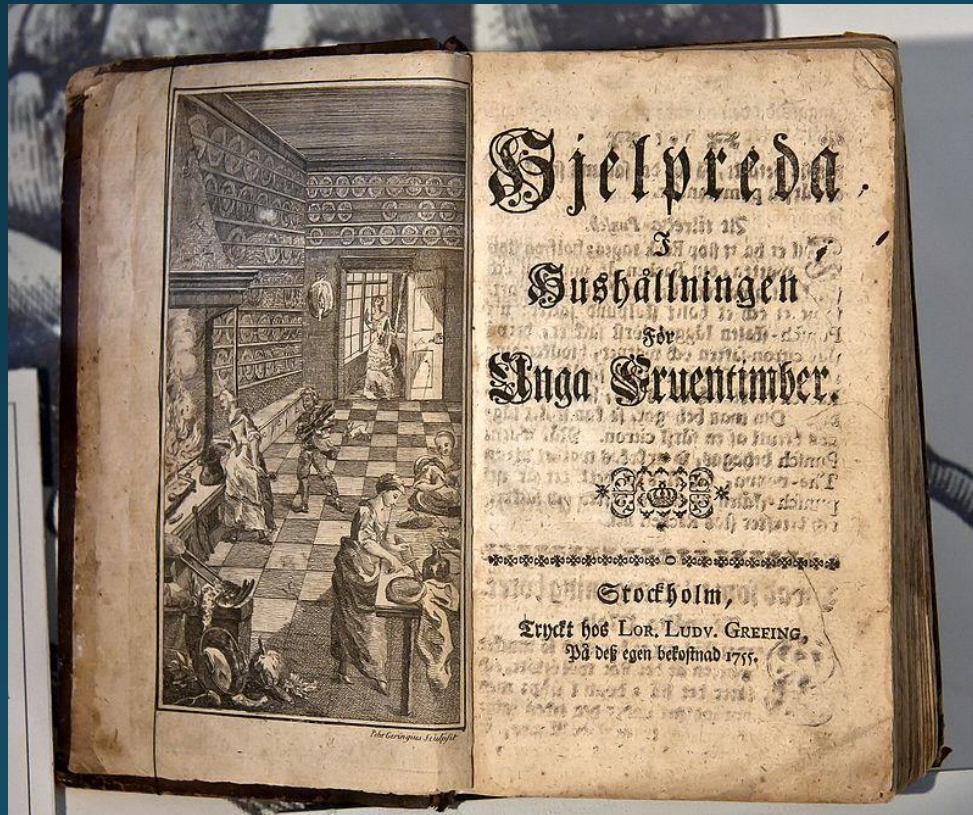 Pehr Geringius Sculpsit
Hjelpreda
I
Hushållningen
För
Unga Fruentimber.
Stockholm,
Tryckt hos LOR. LUDV. GREFING,
På deß egen bekostnad 1755.